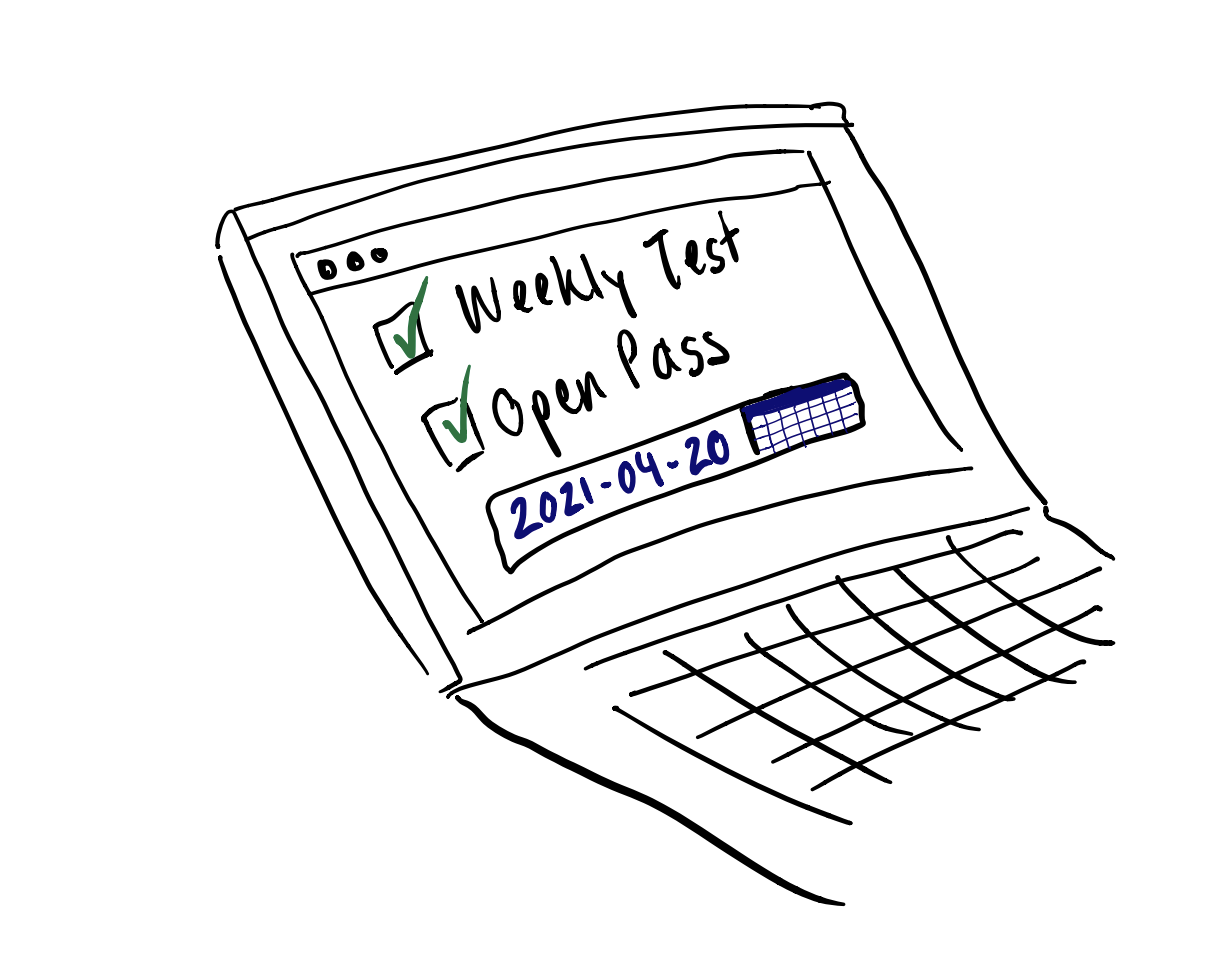 Weekly Test
Open Pass
2021-04-20